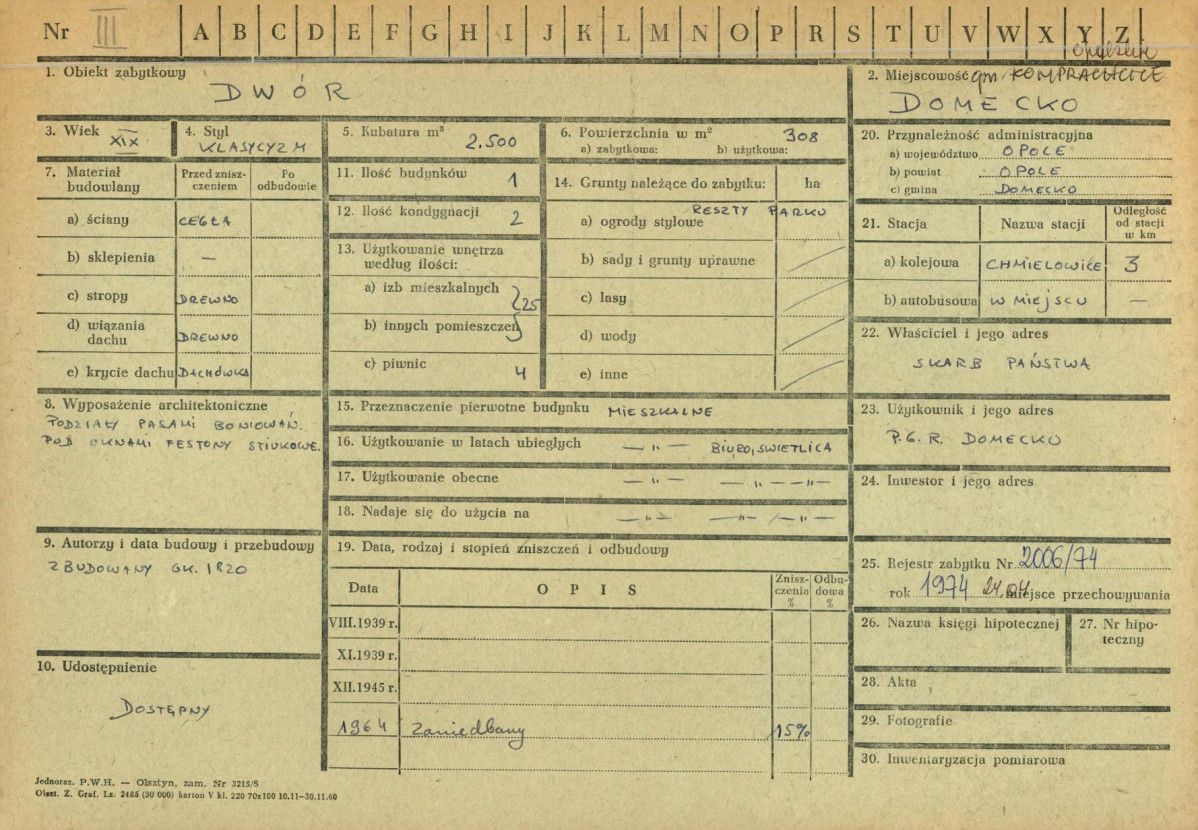 Nr III A B C D E F G H I J K L M N O P R S T U V W X Y Z
opolskie
1. Obiekt zabytkowy
DWÓR
2. Miejscowość gm. KOMPRACHCICE
DOMECKO
3. Wiek XIX
4. Styl
KLASYCYZM
5. Kubatura m³ 2.500
6. Powierzchnia w m² 308
a) zabytkowa: b) użytkowa:
20. Przynależność administracyjna
a) województwo OPOLE
b) powiat OPOLE
c) gmina DOMECKO
7. Materiał budowlany
Przed znisz-
czeniem
Po
odbudowie
a) ściany CEGŁA
b) sklepienia —
c) stropy DREWNO
d) wiązania
dachu DREWNO
e) krycie dachu DACHÓWKA
11. Ilość budynków 1
12. Ilość kondygnacji 2
13. Użytkowanie wnętrza
według ilości:
a) izb mieszkalnych
25
b) innych pomieszczeń
c) piwnic 4
14. Grunty należące do zabytku: ha
RESZTY PARKU
a) ogrody stylowe
b) sady i grunty uprawne
c) lasy
d) wody
e) inne
21. Stacja Nazwa stacji
Odległość
od stacji
w km
a) kolejowa CHMIELOWICE 3
b) autobusowa W MIEJSCU —
22. Właściciel i jego adres
SKARB PAŃSTWA
8. Wyposażenie architektoniczne
PODZIAŁY PASAMI BONIOWAŃ.
POD OKNAMI FESTONY STIUKOWE.
15. Przeznaczenie pierwotne budynku MIESZKALNE
16. Użytkowanie w latach ubiegłych — " — BIURO, SWIETLICA
17. Użytkowanie obecne — " — — " — " —
18. Nadaje się do użycia na — " — — " — " —
23. Użytkownik i jego adres
P.G.R. DOMECKO
24. Inwestor i jego adres
9. Autorzy i data budowy i przebudowy
ZBUDOWANY OK. 1820
19. Data, rodzaj i stopień zniszczeń i odbudowy
Data OPIS
Znisz-
czenia
%
Odbu-
dowa
%
VIII.1939 r.
XI.1939 r.
XII.1945 r.
1964 Zaniedbany 15%
10. Udostępnienie
DOSTĘPNY
25. Rejestr zabytku Nr 2006/74
rok 1974 24.04 miejsce przechowywania
26. Nazwa księgi hipotecznej
27. Nr hipo-
teczny
28. Akta
29. Fotografie
30. Inwentaryzacja pomiarowa
Jednoraz. P.W.H. — Olsztyn, zam. Nr 3215/S
Olszt. Z. Graf. Lz. 2485 (30 000) karton V kl. 220 70x100 10.11—30.11.60